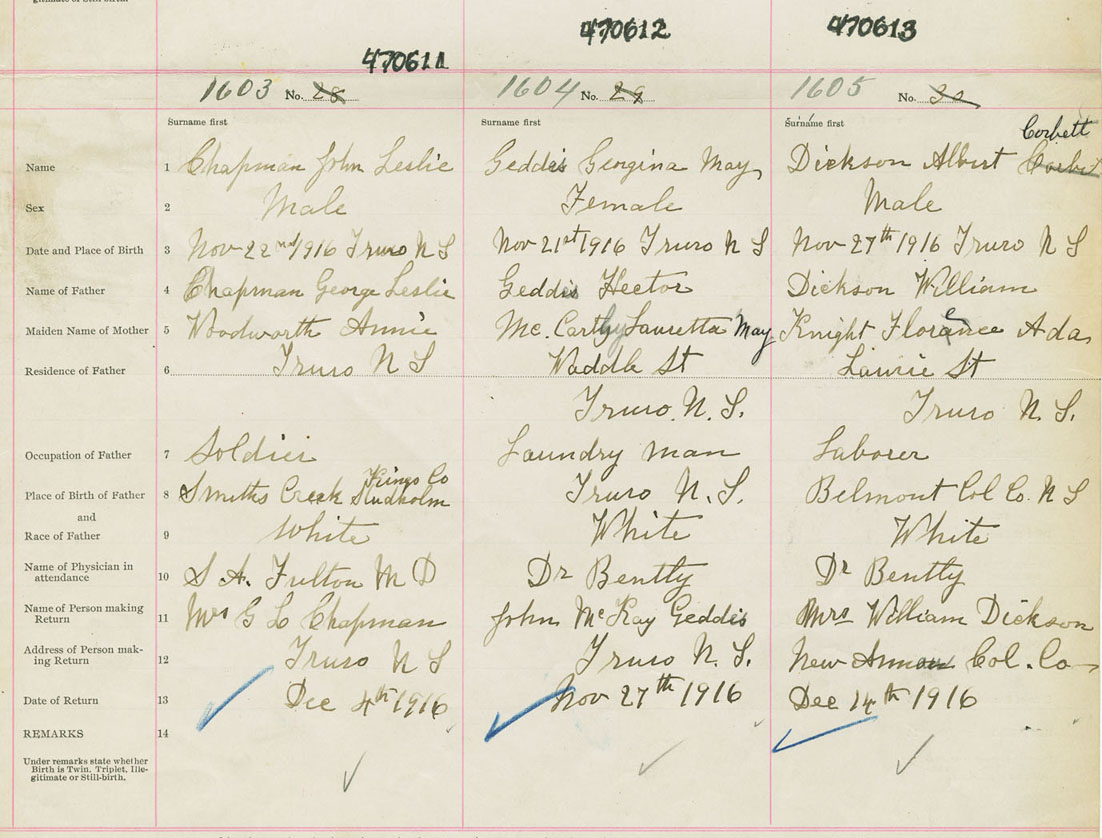 470611 470612 470613
1603 No. 28 1604 No. 29 1605 No. 30
Surname first Surname first Surname first
Corbett
Name 1 Chapman John Leslie Geddis Georgina May Dickson Albert Corbit
Sex 2 Male Female Male
Date and Place of Birth 3 Nov 22nd/1916 Truro N S Nov 21st 1916 Truro N S Nov 27th 1916 Truro N S
Name of Father 4 Chapman George Leslie Geddis Hector Dickson William
Maiden Name of Mother 5 Woodworth Annie Mc. Carthy Lauretta May Knight Florence Ada
Residence of Father 6 Truro N S Waddle St Laurie St
Truro. N. S. Truro N. S.
Occupation of Father 7 Soldier Laundry man Laborer
Kings Co
Place of Birth of Father 8 Smiths Creek Studholm Truro N. S. Belmont Col Co. N S
and
Race of Father 9 White White White
Name of Physician in
attendance 10 S A. Fulton M D Dr Bently Dr Bently
Name of Person making
Return 11 Mrs G L Chapman John McKay Geddis Mrs William Dickson
Address of Person mak-
ing Return 12 Truro N S Truro N. S. New Annan Col. Co
Date of Return 13 Dec 4th 1916 Nov 27th 1916 Dec 14th 1916
REMARKS 14
Under remarks state whether
Birth is Twin, Triplet, Ille-
gitimate or Still-birth.